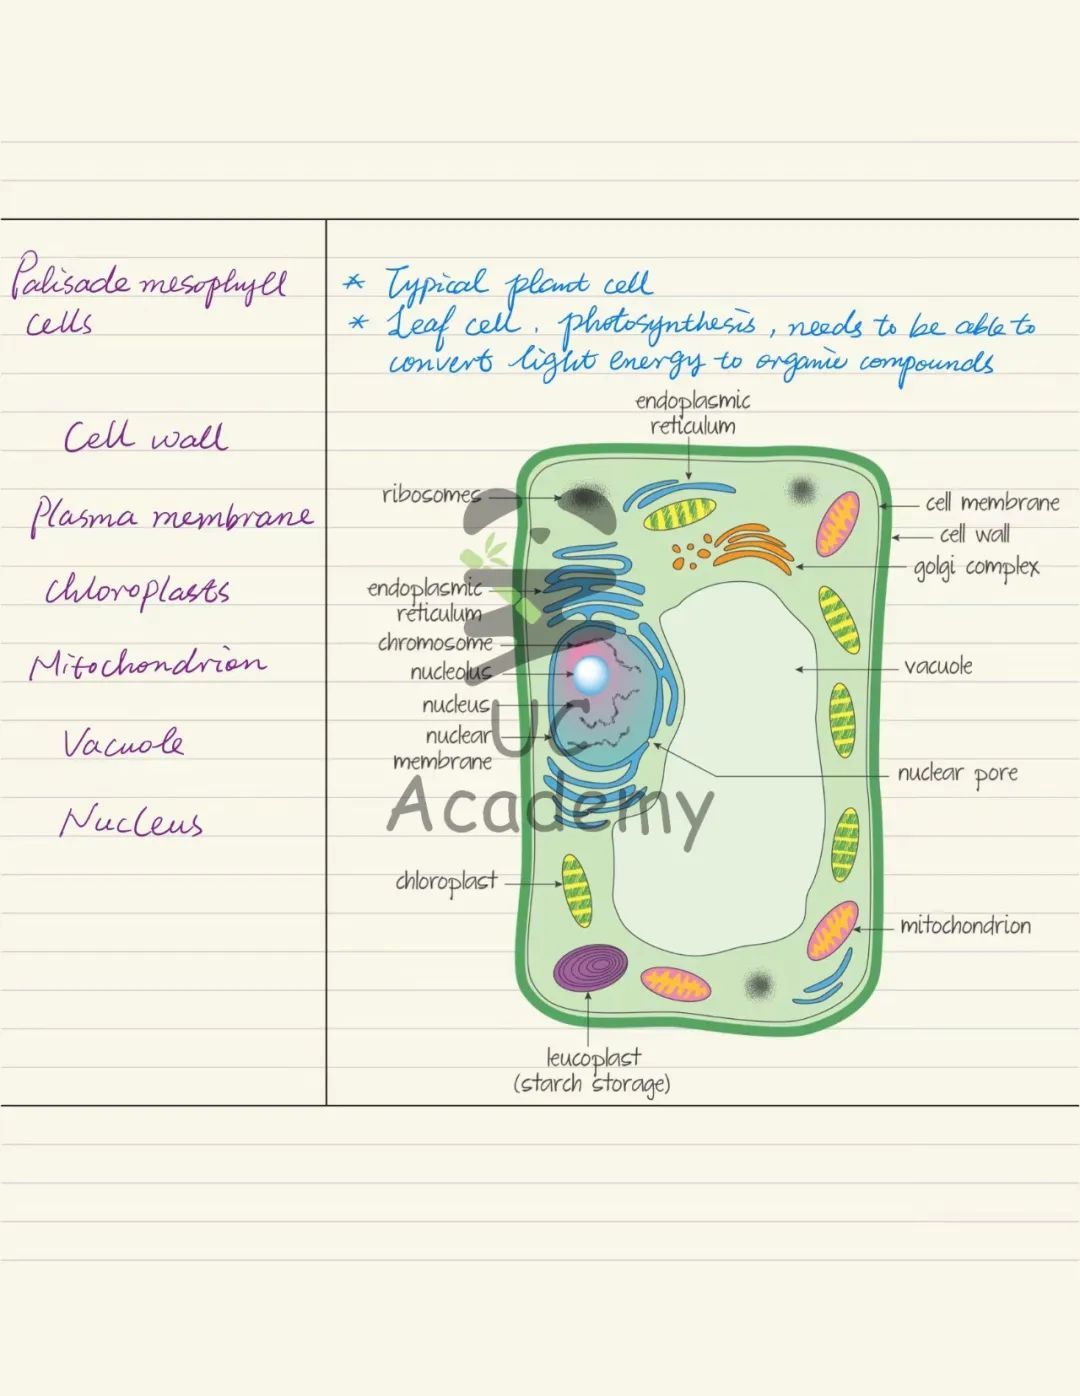 Palisade mesophyll
cells
Cell wall
Plasma membrane
Chloroplasts
Mitochondrion
Vacuole
Nucleus
* Typical plant cell
* Leaf cell, photosynthesis, needs to be able to
convert light energy to organic compounds
endoplasmic
reticulum
ribosomes
cell membrane
cell wall
golgi complex
endoplasmic
reticulum
chromosome
nucleolus
vacuole
nucleus
nuclear
membrane
nuclear pore
UC
Academy
chloroplast
mitochondrion
leucoplast
(starch storage)